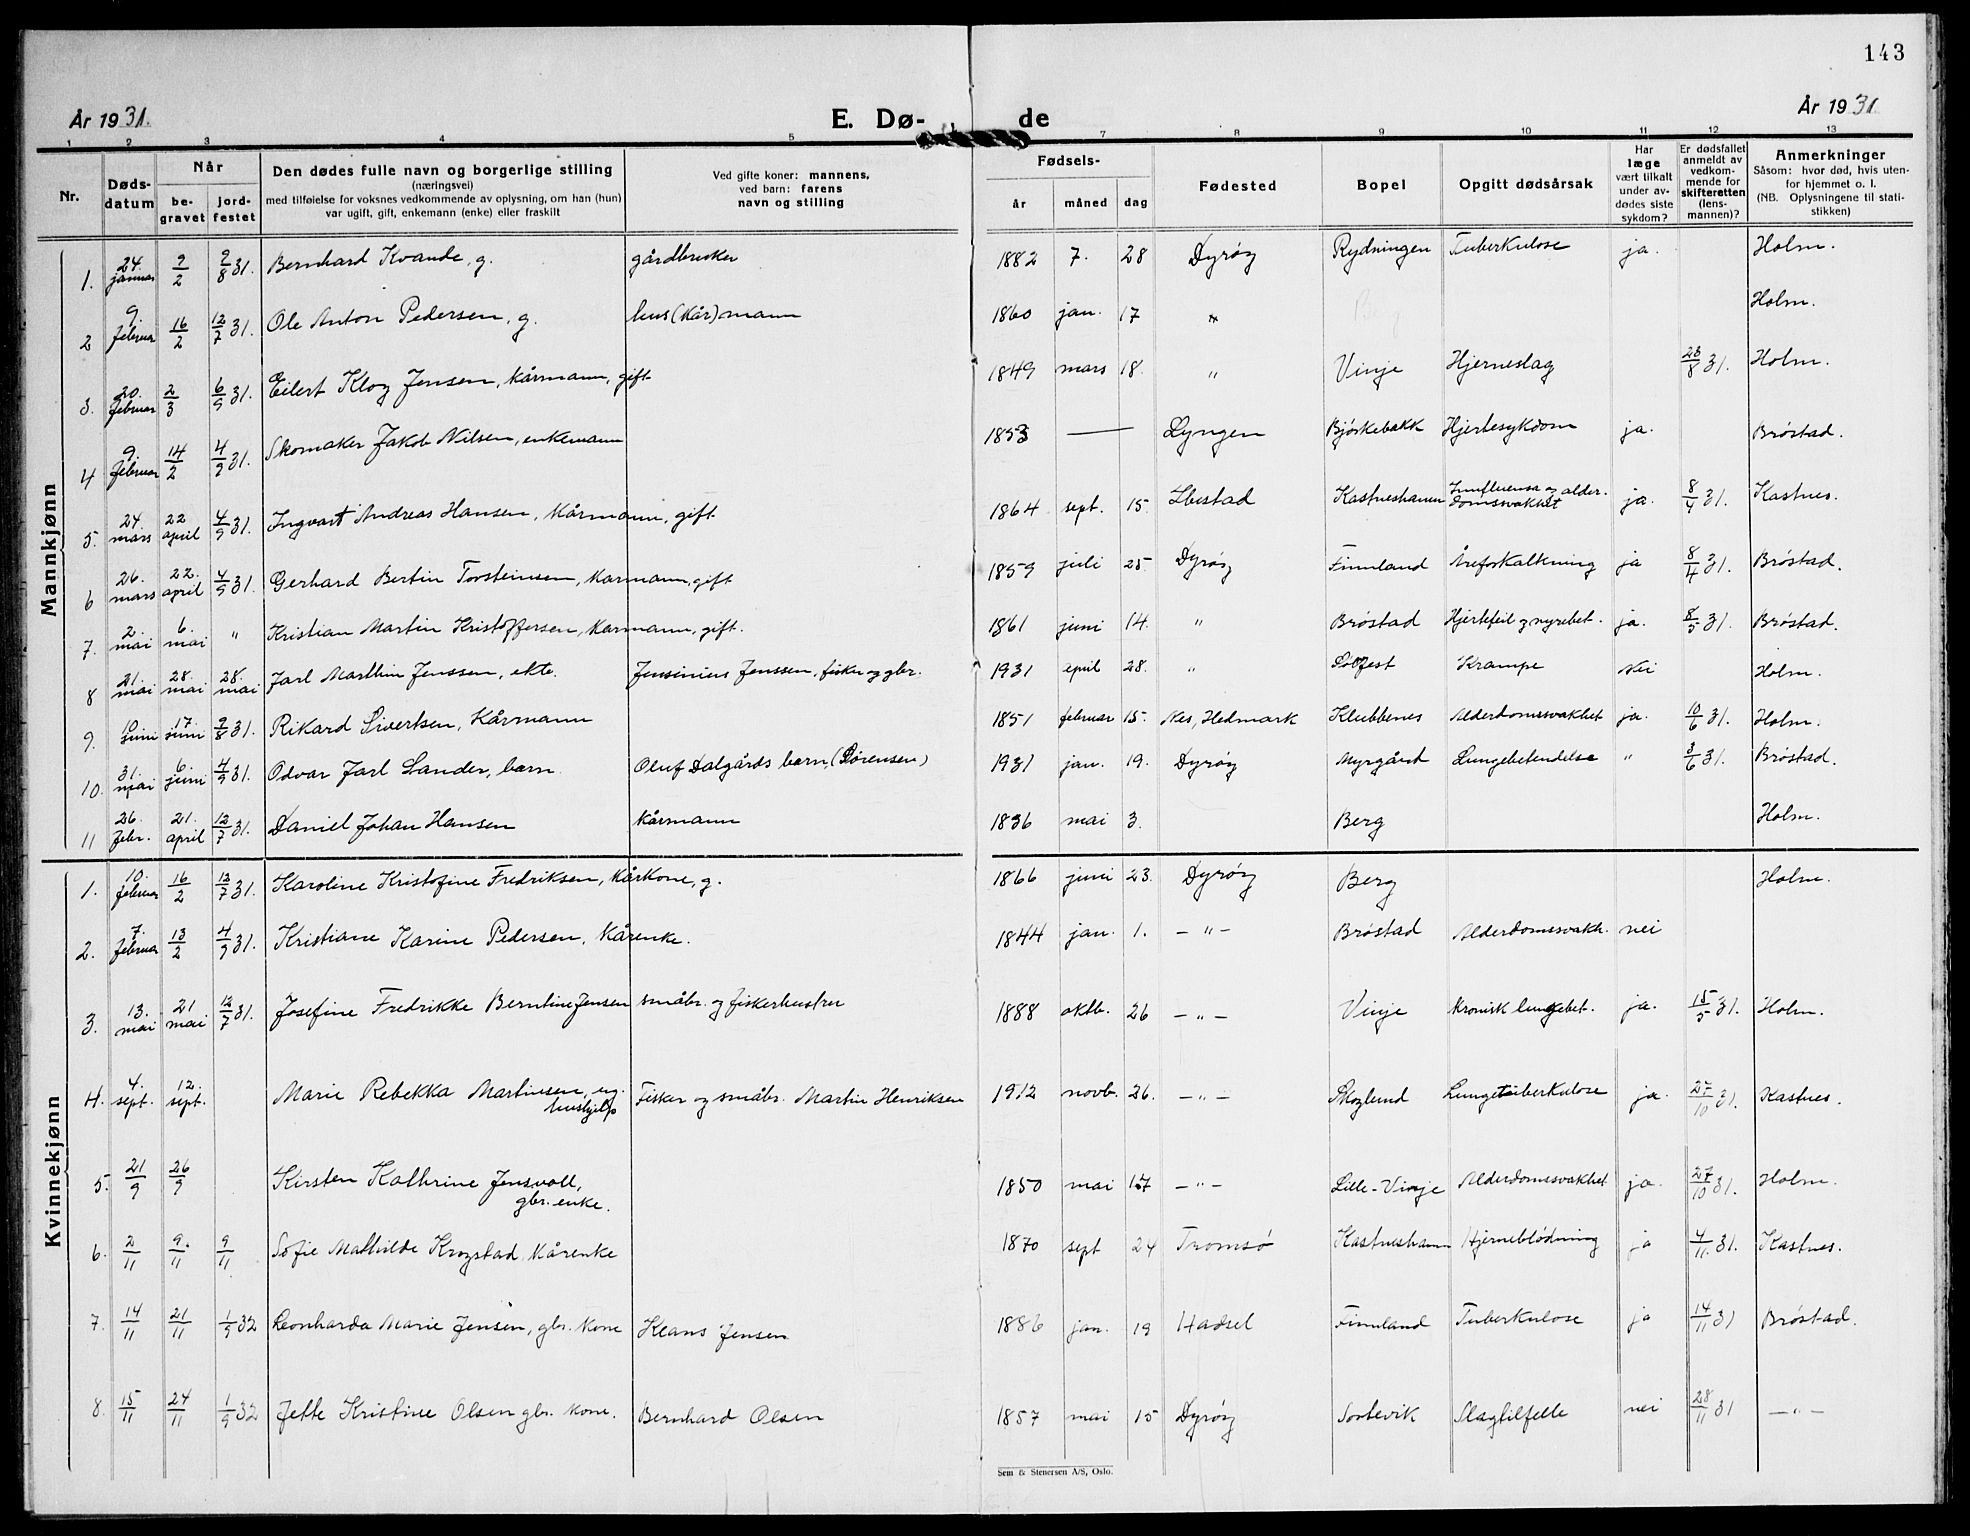 143
År 1931. E. Dø- de År 1931
1 2 3 4 5 7 8 9 10 11 12 13
Nr. Dødsdatum Når begravet jordfestet
Den dødes fulle navn og borgerlige stilling
(næringsvei)
med tilføielse for voksnes vedkommende av oplysning, om han (hun)
var ugift, gift, enkemann (enke) eller fraskilt
Ved gifte koner: mannens,
ved barn: farens
navn og stilling
Fødsels-
år måned dag
Fødested
Bopel
Opgitt dødsårsak
Har
læge
vært tilkalt
under av-
dødes siste
sykdom?
Er dødsfallet
anmeldt av
vedkom-
mende for
skifteretten
(lens-
mannen)?
Anmerkninger
Såsom: hvor død, hvis uten-
for hjemmet o. l.
(NB. Oplysningene til stati-
stikken)
Mannkjønn
1. 24. januar 2/2 2/8 31. Bernhard Kvande, g. gårdbruker 1882 7. 28 Dyrøy Rydningen Tuberkulose ja. Holm.
2 9. februar 16/2 12/7 31. Ole Anton Pedersen, g. hus(kår)mann 1860 jan. 17 " Berg Holm.
3. 20. februar 2/3 6/9 31. Eilert Klog Jensen, kårmann, gift 1849 mars 18. " Vinje Hjerneslag 23/8 31. Holm.
4 9. februar 14/2 4/9 31. Skomaker Jakob Nilsen, enkemann 1853 — Lyngen Bjørkebakk Hjertesykdom ja. Brøstad.
5. 24. mars 22 april 4/9 31. Ingvart Andreas Hansen, kårmann, gift 1864 sept. 15. Ibestad Kastneshamn Innfluensa og alder-
domssvakhet ja. 8/4 31. Kastnes.
6 26. mars 22. april 4/9 31. Gerhard Bertin Torsteinsen, kårmann, gift 1859 juli 25. Dyrøy Finnland Åreforkalkning ja 8/4 31. Brøstad.
7. 2. mai 6. mai " Kristian Martin Kristoffersen, kårmann, gift. 1861 juni 14. " Brøstad Hjertefeil og nyrebet. ja. 8/5 31. Brøstad.
8 21. mai 28. mai 28. mai Jarl Marthin Jenssen, ekte. Jensinius Jenssen, fisker og gbr. 1931 april 28. " Solfest Krampe Nei Holm.
9. 10 juni 17. juni 2/8 31. Rikard Sivertsen, Kårmann 1851 februar 15. Nes, Hedmark Klubbenes Alderdomssvakhet ja. 10/6 31. Holm.
10. 31. mai 6. juni 4/9 31. Odvar Jarl Sander, barn. Oluf Dalgårds barn, (Sørensen) 1931 jan. 19. Dyrøy Myrgård Lungebetendelse " 3/6 31. Brøstad.
11 26. febr. 21. april 12/7 31. Daniel Johan Hansen kårmann 1836 mai 3. Berg Holm.
Kvinnekjønn
1. 10. februar 16/2 12/7 31. Karoline Kristofine Fredriksen, kårkone, g. 1866 juni 23. Dyrøy Berg Holm.
2. 7. februar 13/2 4/9 31. Kristiane Karine Pedersen, kårenke. 1844 jan. 1. — " — Brøstad Alderdomssvakh. nei
3. 13. mai 21 mai 12/7 31. Josefine Fredrikke Berntine Jensen småbr. og fiskerhustru 1888 oktb. 26 — " — Vinje kronisk lungebet. ja. 15/5 31. Holm.
4. 4. sept. 12. sept. Marie Rebekka Martinsen, ug.
hushjelp Fisker og småbr. Martin Henriksen 1912 novb. 26. — " — Skoglund Lungetuberkulose ja. 27/10 31. Kastnes.
5. 21/9 26/9 Kirsten Kathrine Jensvoll,
gbr. enke. 1850 mai 17 — " — Lille-Vinje Alderdomssvakhet ja. 27/10 31. Holm.
6. 2/11 9./11 9/11 Sofie Mathilde Krogstad kårenke 1870 sept 24 Tromsø Kastneshamn Hjerneblødning ja 4/11. 31. Kastnes.
7. 14/11 21/11 1/9 32 Leonharda Marie Jensen, gbr. kone Hans Jensen 1886 jan. 19 Hadsel Finnland Tuberkulose ja 14/11 31 Brøstad.
8. 15/11 24/11 1/9 32 Jette Kristine Olsen gbr. kone. Bernhard Olsen 1857 mai 15 Dyrøy Sørtevik Slagtilfelle nei 28/11 31 — " —
Sem & Stenersen A/S, Oslo.